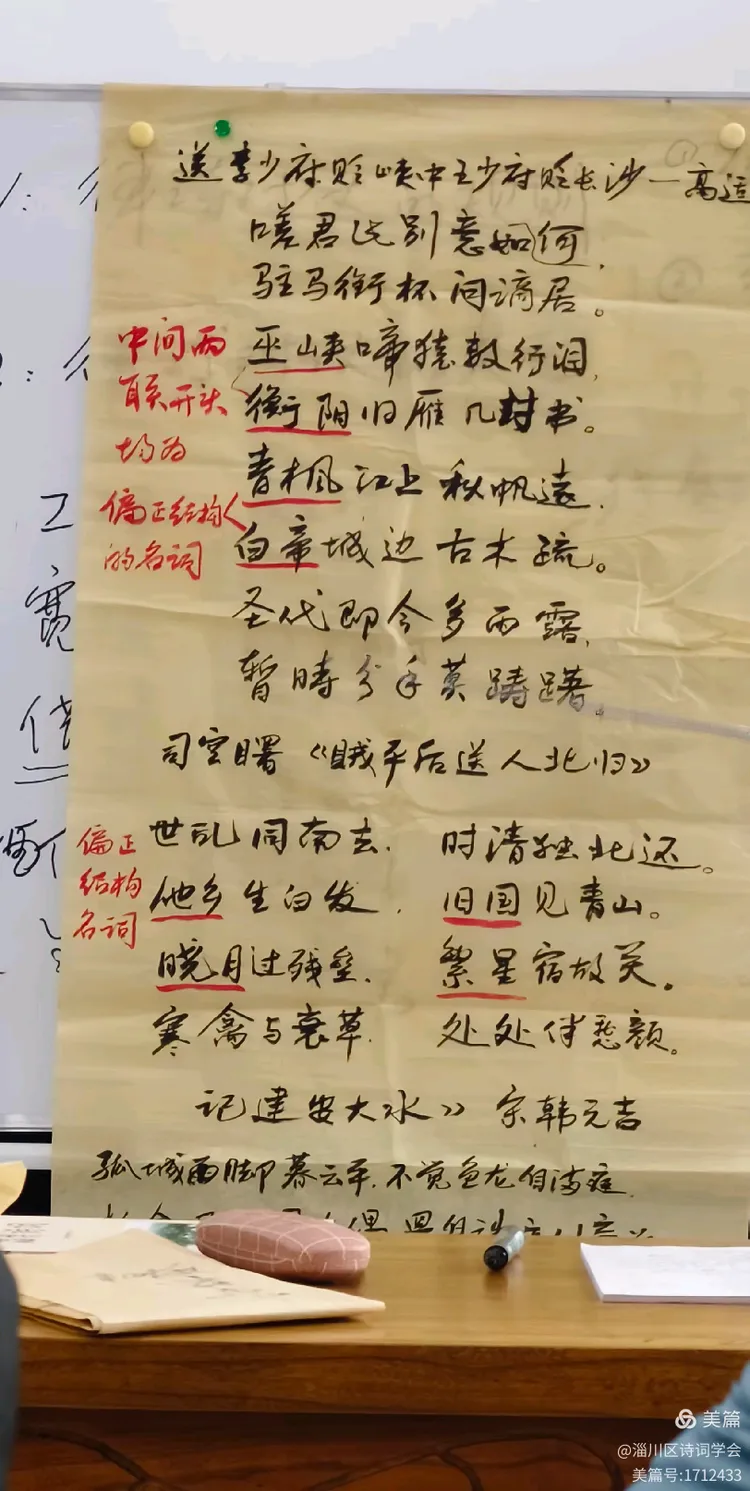 送李少府贬峡中王少府贬长沙一高适
嗟君此别意如何,
驻马衔杯问谪居。
巫峡啼猿数行泪,
衡阳旧雁几封书。
青枫江上秋帆远,
白帝城边古木疏。
圣代即今多雨露,
暂時分手莫踌躇。
中间两
联开头
均为
偏正结构
的名词
司空曙《贼平后送人北归》
世乱同南去, 时清独北还。
他乡生白发, 旧国见青山。
晓月过残垒, 繁星宿故关。
寒禽与衰草, 处处伴愁颜。
偏正
结构
名词
记建安大水》 宋韩元吉
孤城雨脚暮云平,不觉鱼龙自满庭,
美篇
@淄川区诗词学会
美篇号:1712433